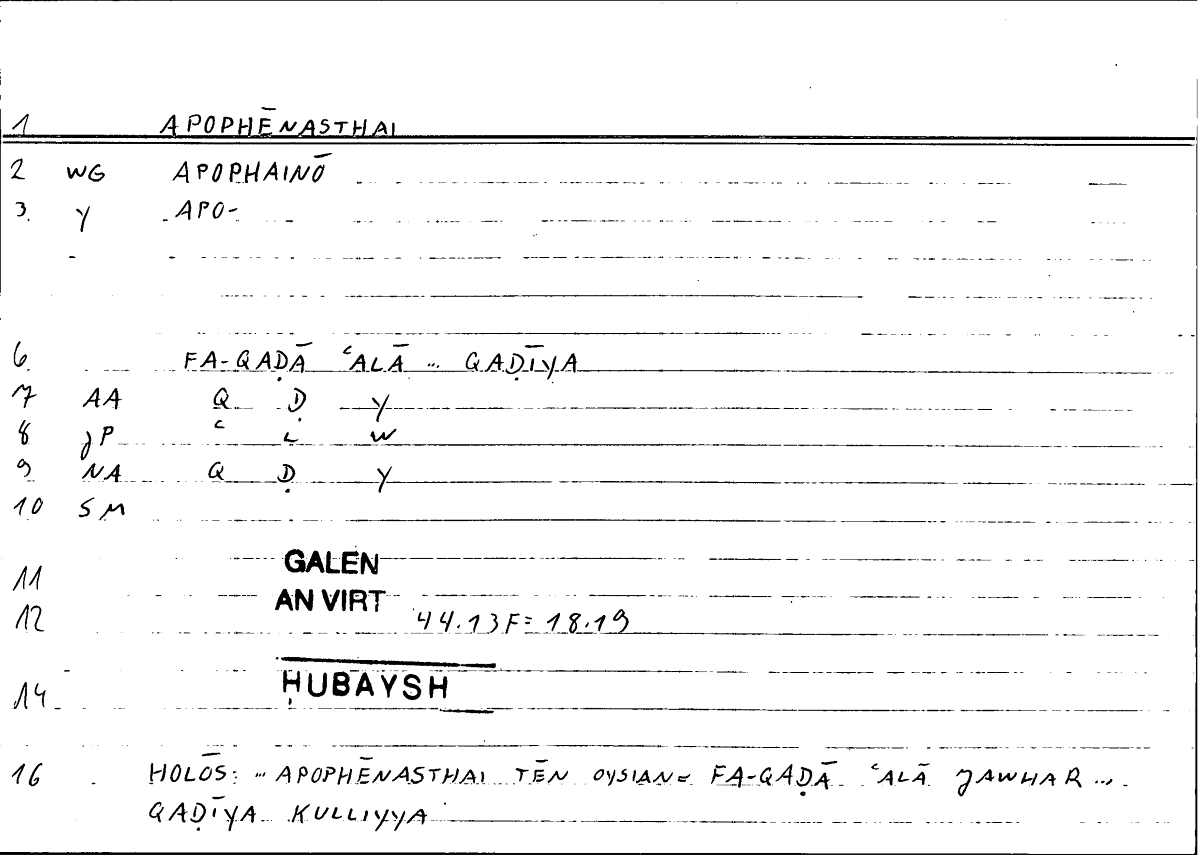 1 APOPHĒNASTHAI
2 WG APOPHAINŌ
3. Y APO-
6 FA-QAḌĀ ʿALĀ … QAḌĪYA
7 AA Q Ḍ Y
8 JP ʿ L W
9 NA Q Ḍ Y
10 SM
11 GALEN
AN VIRT
12 44.13F= 18.19
14 ḤUBAYSH
16 HOLŌS: … APOPHĒNASTHAI TĒN OYSIAN= FA-QAḌĀ ʿALĀ JAWHAR …
QAḌĪYA KULLIYYA